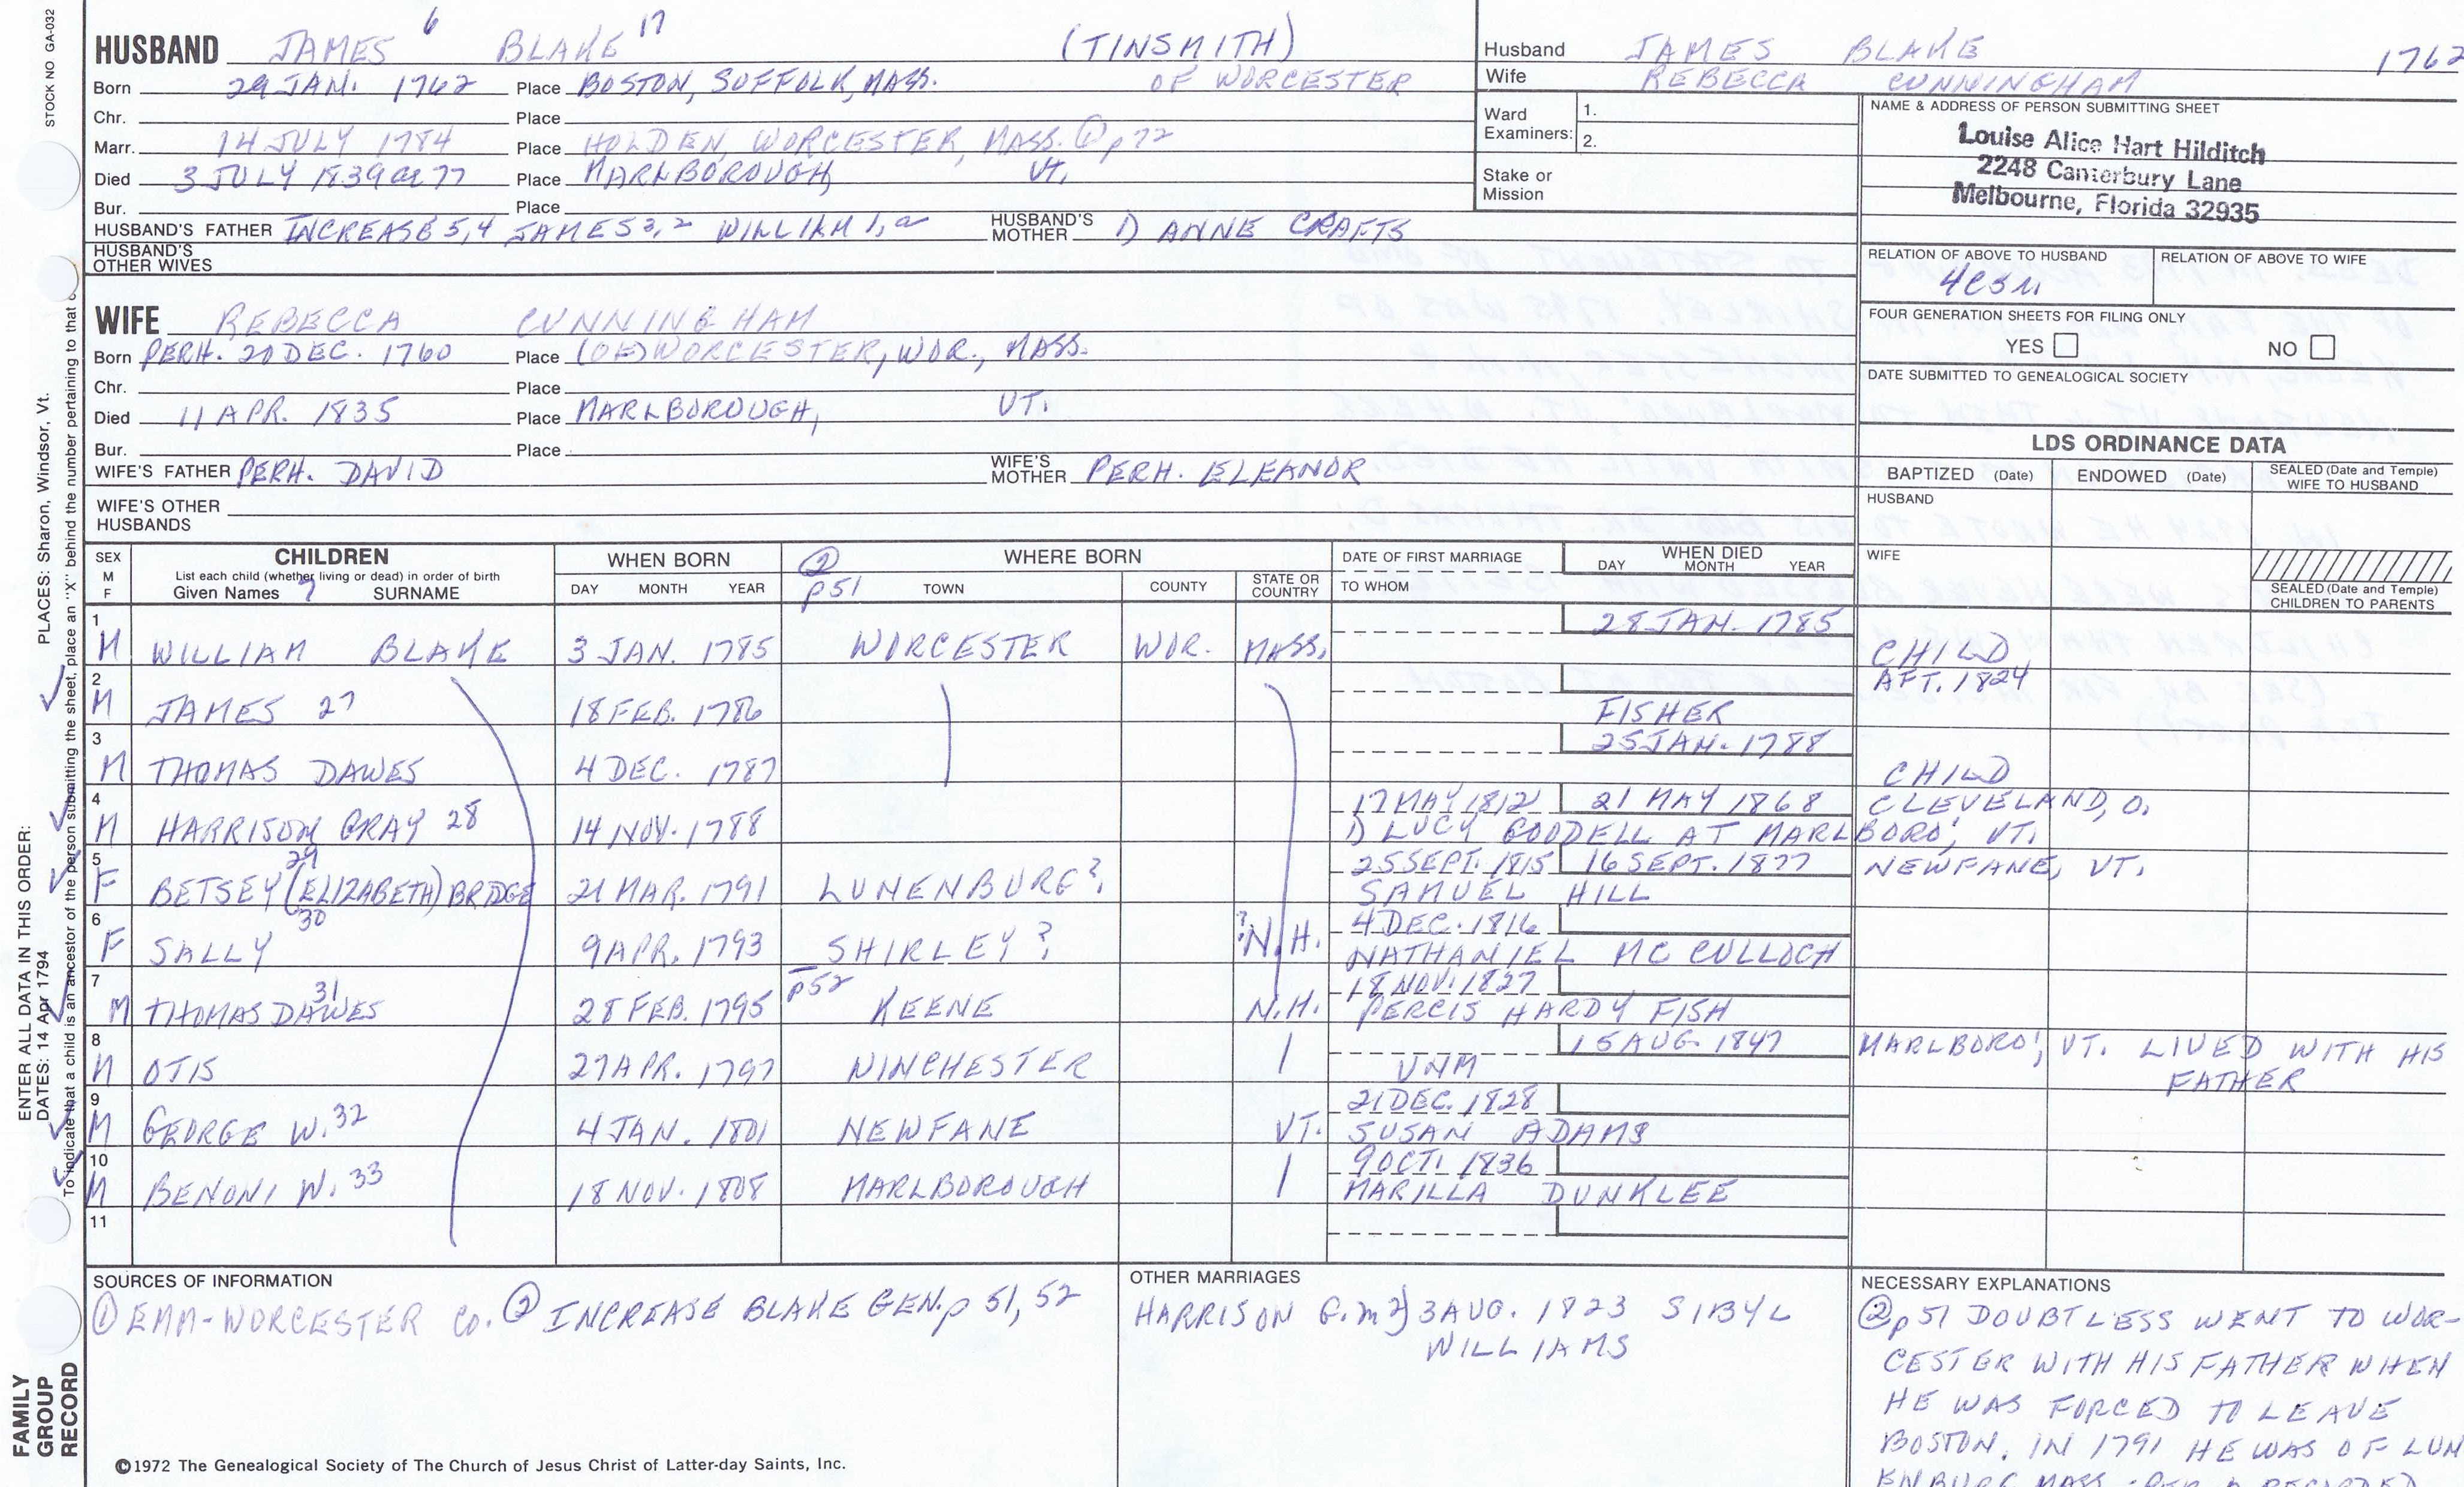 STOCK NO GA-032
HUSBAND JAMES 6 BLAKE 17 (TINSMITH)
Born 29 JAN. 1762 Place BOSTON, SUFFOLK, MASS. OF WORCESTER
Chr. Place
Marr. 14 JULY 1784 Place HOLDEN, WORCESTER, MASS. ① p 72
Died 3 JULY 1839 ae 77 Place MARLBOROUGH, VT.
Bur. Place
HUSBAND'S FATHER INCREASE 5,4 JAMES 3,2 WILLIAM 1,a HUSBAND'S MOTHER 1) ANNE CRAFTS
HUSBAND'S OTHER WIVES
Husband JAMES BLAKE 1762
Wife REBECCA CUNNINGHAM
Ward Examiners: 1.
2.
Stake or Mission
NAME & ADDRESS OF PERSON SUBMITTING SHEET
Louise Alice Hart Hilditch
2248 Canterbury Lane
Melbourne, Florida 32935
RELATION OF ABOVE TO HUSBAND RELATION OF ABOVE TO WIFE
FOUR GENERATION SHEETS FOR FILING ONLY
YES NO
DATE SUBMITTED TO GENEALOGICAL SOCIETY
WIFE REBECCA CUNNINGHAM
Born PERH. 20 DEC. 1760 Place (OF) WORCESTER, WOR., MASS.
Chr. Place
Died 11 APR. 1835 Place MARLBOROUGH, VT.
Bur. Place
WIFE'S FATHER PERH. DAVID WIFE'S MOTHER PERH. ELEANOR
WIFE'S OTHER HUSBANDS
LDS ORDINANCE DATA
BAPTIZED (Date) ENDOWED (Date) SEALED (Date and Temple) WIFE TO HUSBAND
HUSBAND
WIFE
SEALED (Date and Temple) CHILDREN TO PARENTS
SEX M F
CHILDREN
List each child (whether living or dead) in order of birth
Given Names 7 SURNAME
WHEN BORN
DAY MONTH YEAR
② p51 WHERE BORN
TOWN COUNTY STATE OR COUNTRY
DATE OF FIRST MARRIAGE
TO WHOM
WHEN DIED
DAY MONTH YEAR
1 28 JAN. 1785
M WILLIAM BLAKE 3 JAN. 1785 WORCESTER WOR. MASS. CHILD
2 AFT. 1824
M JAMES 27 18 FEB. 1786 FISHER
3 25 JAN. 1788
M THOMAS DAWES 4 DEC. 1787 CHILD
4 17 MAY 1812 21 MAY 1868 CLEVELAND, O.
M HARRISON GRAY 28 14 NOV. 1788 1) LUCY GOODELL AT MARLBORO', VT.
5 29 25 SEPT. 1815 16 SEPT. 1877 NEWFANE, VT.
F BETSEY (ELIZABETH) BRIDGE 21 MAR. 1791 LUNENBURG? SAMUEL HILL
6 30 4 DEC. 1816
F SALLY 9 APR. 1793 SHIRLEY? ?N.H. NATHANIEL MC CULLOCH
7 31 p52 18 NOV. 1827
M THOMAS DAWES 28 FEB. 1795 KEENE N.H. PERCIS HARDY FISH
8 15 AUG. 1847 MARLBORO', VT. LIVED WITH HIS FATHER
M OTIS 27 APR. 1797 WINCHESTER UNM
9 21 DEC. 1828
M GEORGE W. 32 4 JAN. 1801 NEWFANE VT. SUSAN ADAMS
10 9 OCT. 1836
M BENONI W. 33 18 NOV. 1808 MARLBOROUGH MARILLA DUNKLEE
11
SOURCES OF INFORMATION
① EMM-WORCESTER CO. ② INCREASE BLAKE GEN. p 51, 52
OTHER MARRIAGES
HARRISON G. m 2) 3 AUG. 1823 SIBYL
WILLIAMS
NECESSARY EXPLANATIONS
② p 51 DOUBTLESS WENT TO WOR-
CESTER WITH HIS FATHER WHEN
HE WAS FORCED TO LEAVE
BOSTON. IN 1791 HE WAS OF LUN
ENBURG MASS.
©1972 The Genealogical Society of The Church of Jesus Christ of Latter-day Saints, Inc.
FAMILY
GROUP
RECORD
ENTER ALL DATA IN THIS ORDER:
DATES: 14 Apr 1794 PLACES: Sharon, Windsor, Vt.
To indicate that a child is an ancestor of the person submitting the sheet, place an "X" behind the number pertaining to that